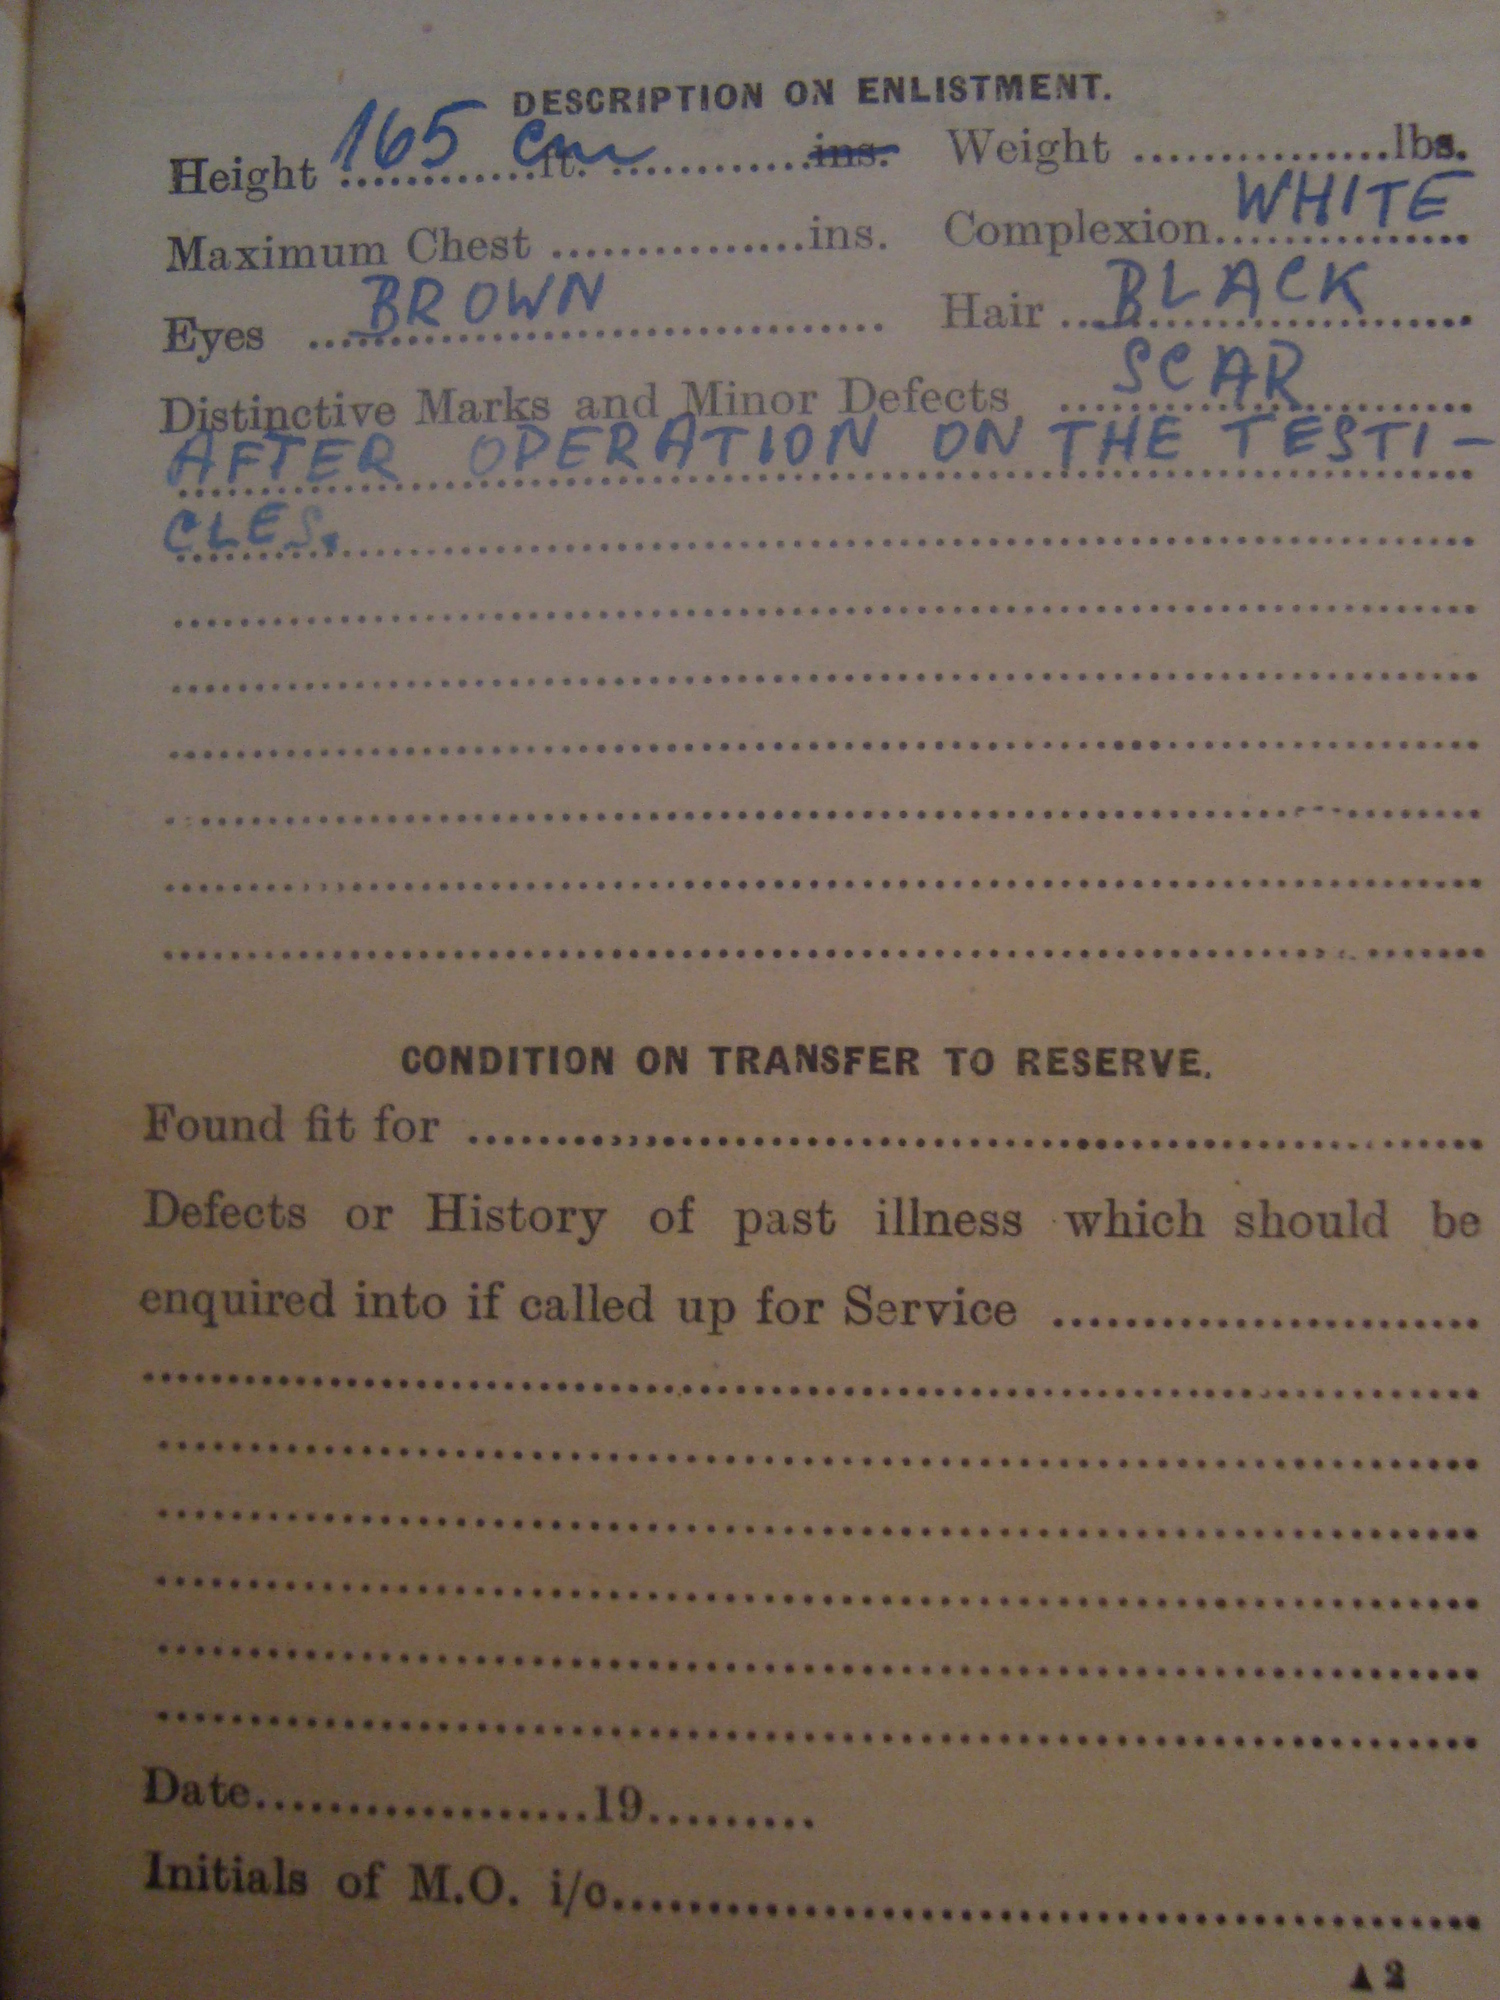 DESCRIPTION ON ENLISTMENT.
Height 165 cm ft. ins. Weight lbs.
Maximum Chest ins. Complexion WHITE
Eyes BROWN Hair BLACK
Distinctive Marks and Minor Defects SCAR
AFTER OPERATION ON THE TESTI-
CLES.
CONDITION ON TRANSFER TO RESERVE.
Found fit for
Defects or History of past illness which should be
enquired into if called up for Service
Date 19
Initials of M.O. i/c
▲ 2